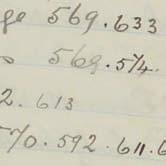 ge 569.633
569.574.
2. 613
570.592.611.6